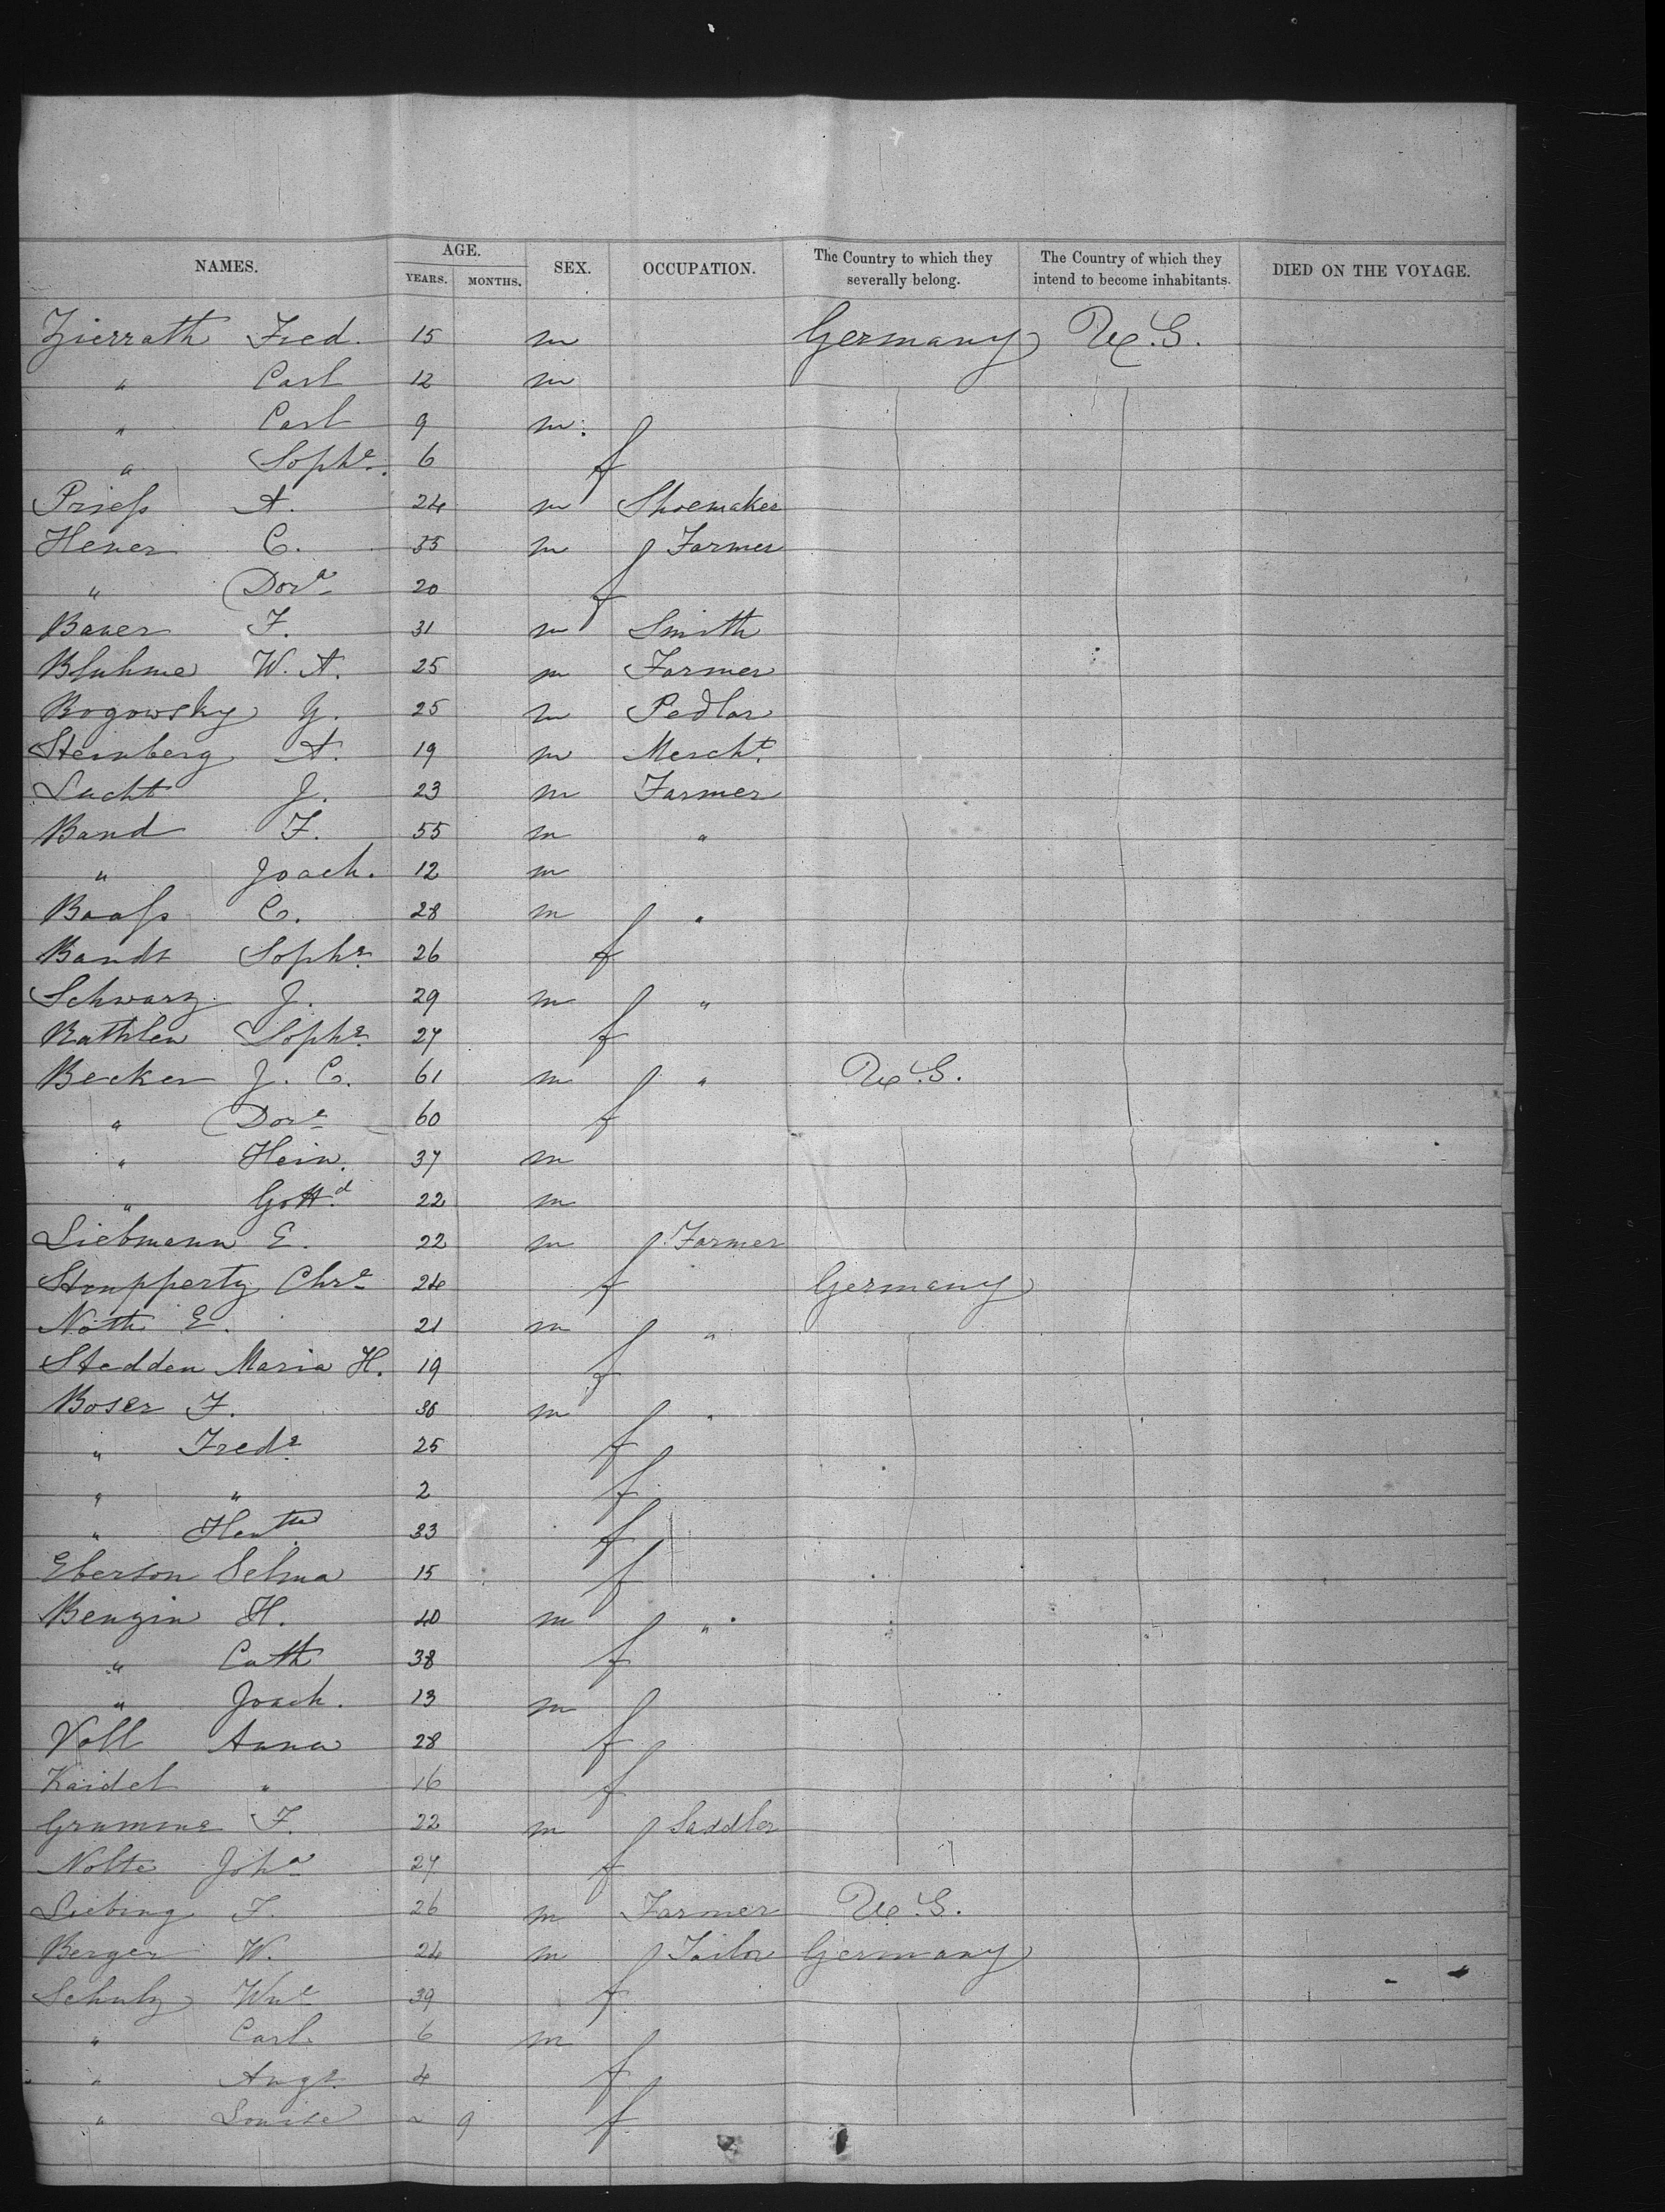 NAMES. AGE. YEARS. MONTHS. SEX. OCCUPATION. The Country to which they severally belong. The Country of which they intend to become inhabitants. DIED ON THE VOYAGE.
Zierrath Fred. 15 m Germany U.S.
" Carl 12 m
" Carl 9 m.
" Soph.e 6 f
Priess A. 24 m Shoemaker
Hener C. 35 m Farmer
" Dor.a 20 f
Bauer F. 31 m Smith
Bluhme W. A. 25 m Farmer
Bogowsky Y. 25 m Pedlar
Steinberg A. 19 m Mercht.
Lucht J. 23 m Farmer
Band F. 55 m "
" Joach. 12 m
Baass C. 28 m "
Bandt Soph.e 26 f
Schwarz J. 29 m "
Rathlen Soph.e 27 f
Becker J. C. 61 m " U.S.
" Dor.e 60 f
" Hein. 37 m
" Gott.d 22 m
Liebmann E. 22 m Farmer
Stuppertz Chr.e 24 f Germany
Nöth E. 21 m "
Stedden Maria H. 19 f
Boser F. 36 m "
" Fred.e 25 f
" " 2 f
" 33 f
Eberson Selma 15 f
Benzin H. 40 m "
" Cath 38 f
" Joach. 13 m
Voll Anna 28 f
Kaidel " 16 f
Gramme F. 22 m Saddler
Nolte Joh.a 27 f
Liebing F. 26 m Farmer U.S.
Berger W. 24 m Tailor Germany
Schulz Wm.e 39 f
" Carl. 6 m
" Aug.e 4 f
" Louise ~ 9 f